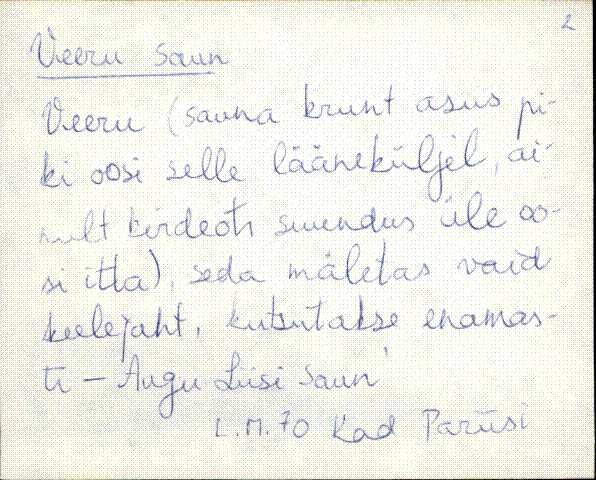 2
Veeru saun
Veeru (sauna krunt asus pi-
ki oosi selle lääneküljel, ai-
nult kirdeots suundus üle oo-
si itta), seda mäletas vaid
keelejaht, kutsutakse enamas-
ti – Augu Liisi saun
L.M.70 Kad Pariisi